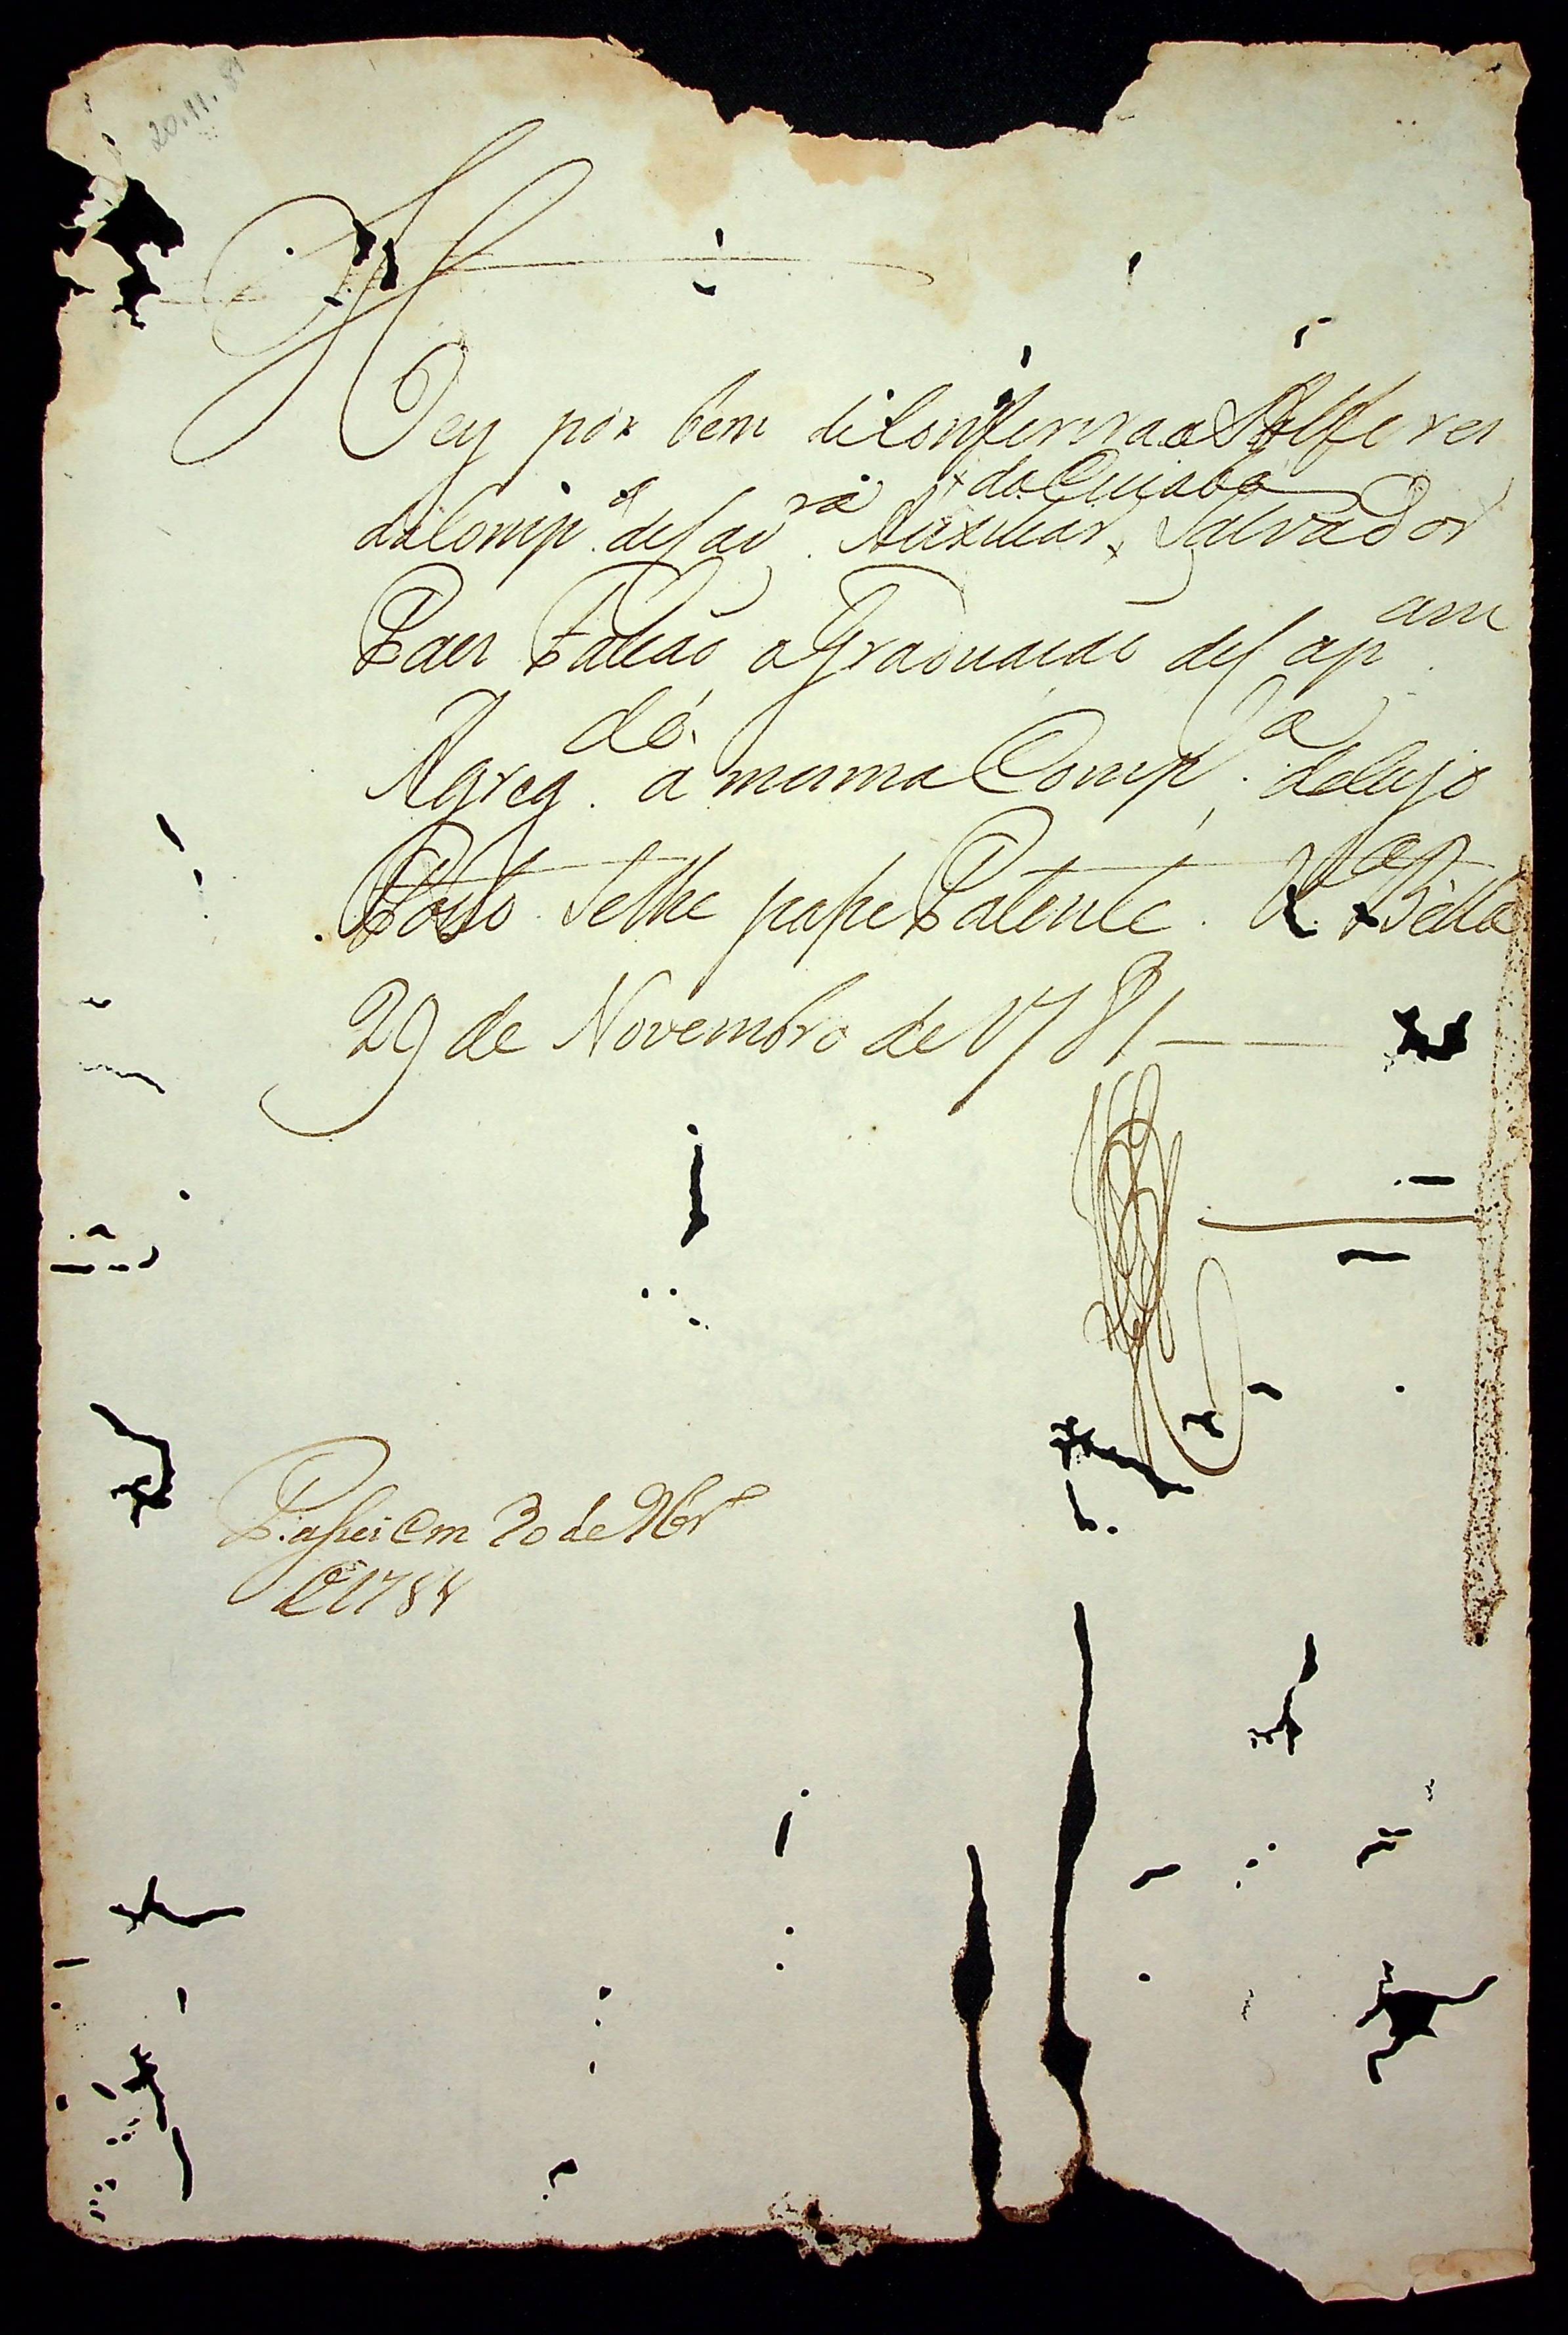 20.11.81
Hey por bem de Conferir ao Alferes
da Comp.ª de Cav.ra Auxiliar x Salvador
x do Cuiabá
Paes Falcão a Graduação de Cap.am
Agreg.do á mesma Comp.ª de cujo
Posto se lhe passe Patente. V.ª Bella
29 de Novembro de 1781
Passei em 30 de 9br.º
de 1781